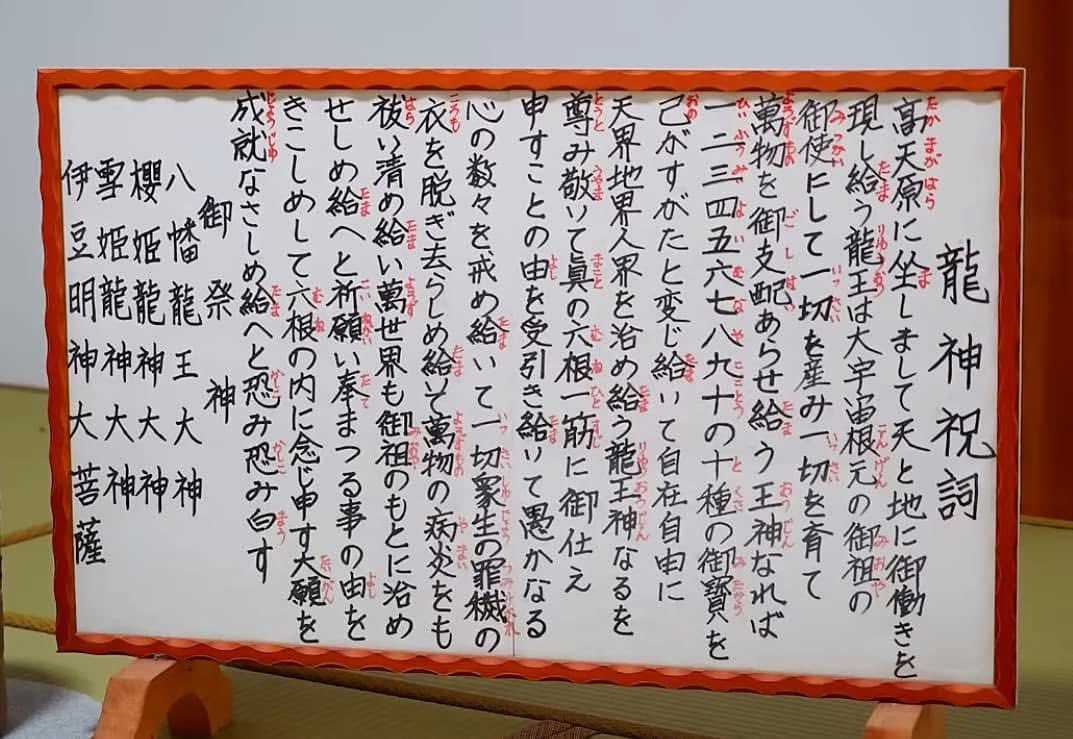 龍神祝詞
高天原に坐しまして天と地に御働きを
現し給う龍王は大宇宙根元の御祖の
御使にして一切を産み一切を育て
萬物を御支配あらせ給う王神なれば
一二三四五六七八九十の十種の御寶を
己がすがたと変じ給いて自在自由に
天界地界人界を治め給う龍王神なるを
尊み敬いて眞の六根一筋に御仕え
申すことの由を受引き給いて愚かなる
心の数々を戒め給いて一切衆生の罪穢の
衣を脱ぎ去らしめ給いて萬物の病災をも
祓い清め給い萬世界も御祖のもとに治め
せしめ給へと祈願い奉まつる事の由を
きこしめして六根の内に念じ申す大願を
成就なさしめ給へと恐み恐み白す
御祭神
八幡龍王大神
櫻姫龍神大神
雪姫龍神大神
伊豆明神大菩薩